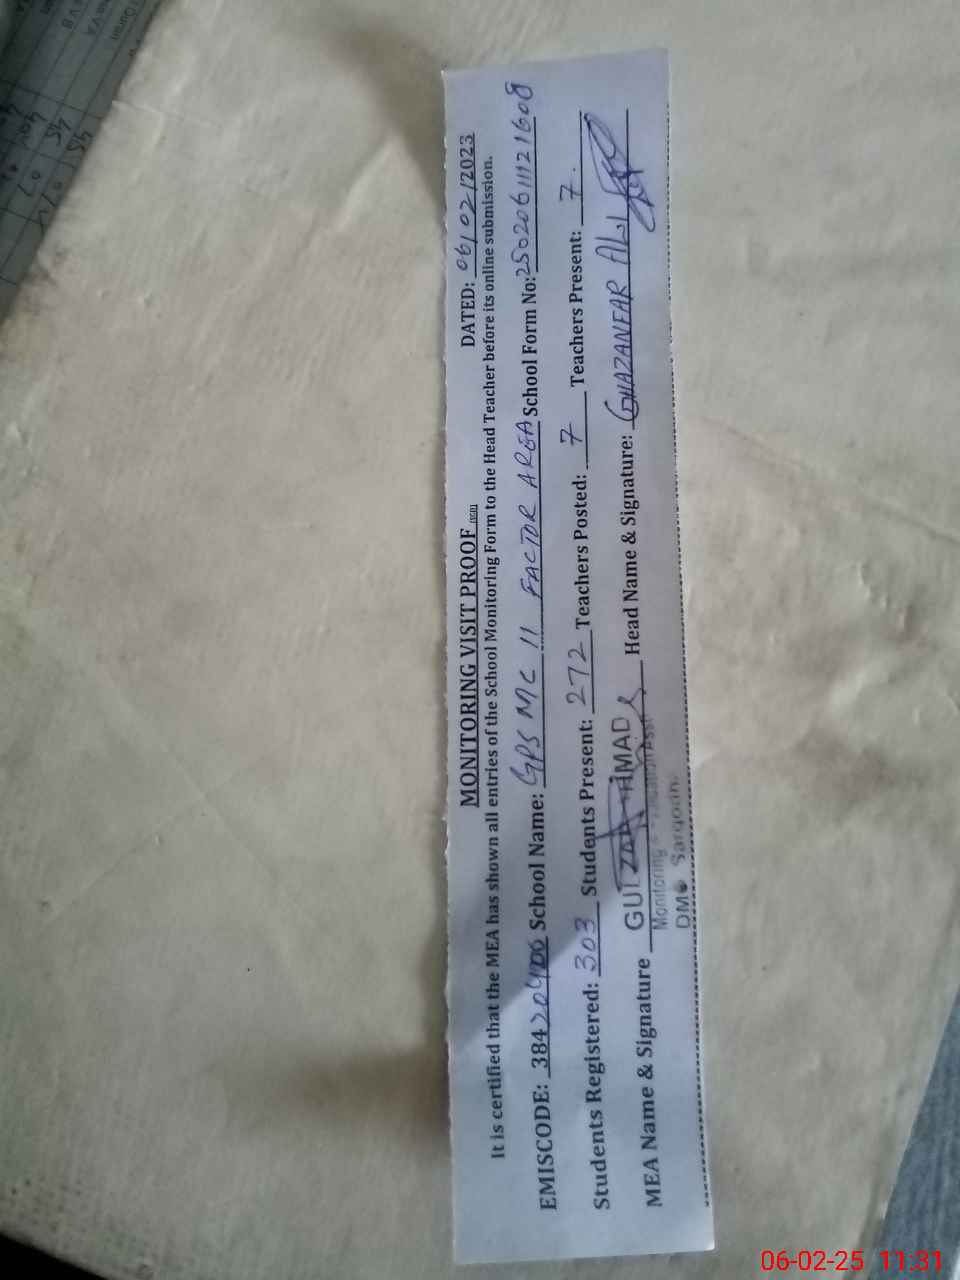 MONITORING VISIT PROOF (SGD)
DATED: 06/02/2023
It is certified that the MEA has shown all entries of the School Monitoring Form to the Head Teacher before its online submission.
EMISCODE: 384 School Name: GPS MC 11 FACTOR AREA School Form No: 250206111121608
Students Registered: 303 Students Present: 272 Teachers Posted: 7 Teachers Present: 7.
MEA Name & Signature Head Name & Signature: GHAZANFAR ALI
Monitoring
DMO Sargodha
06-02-25 11:31